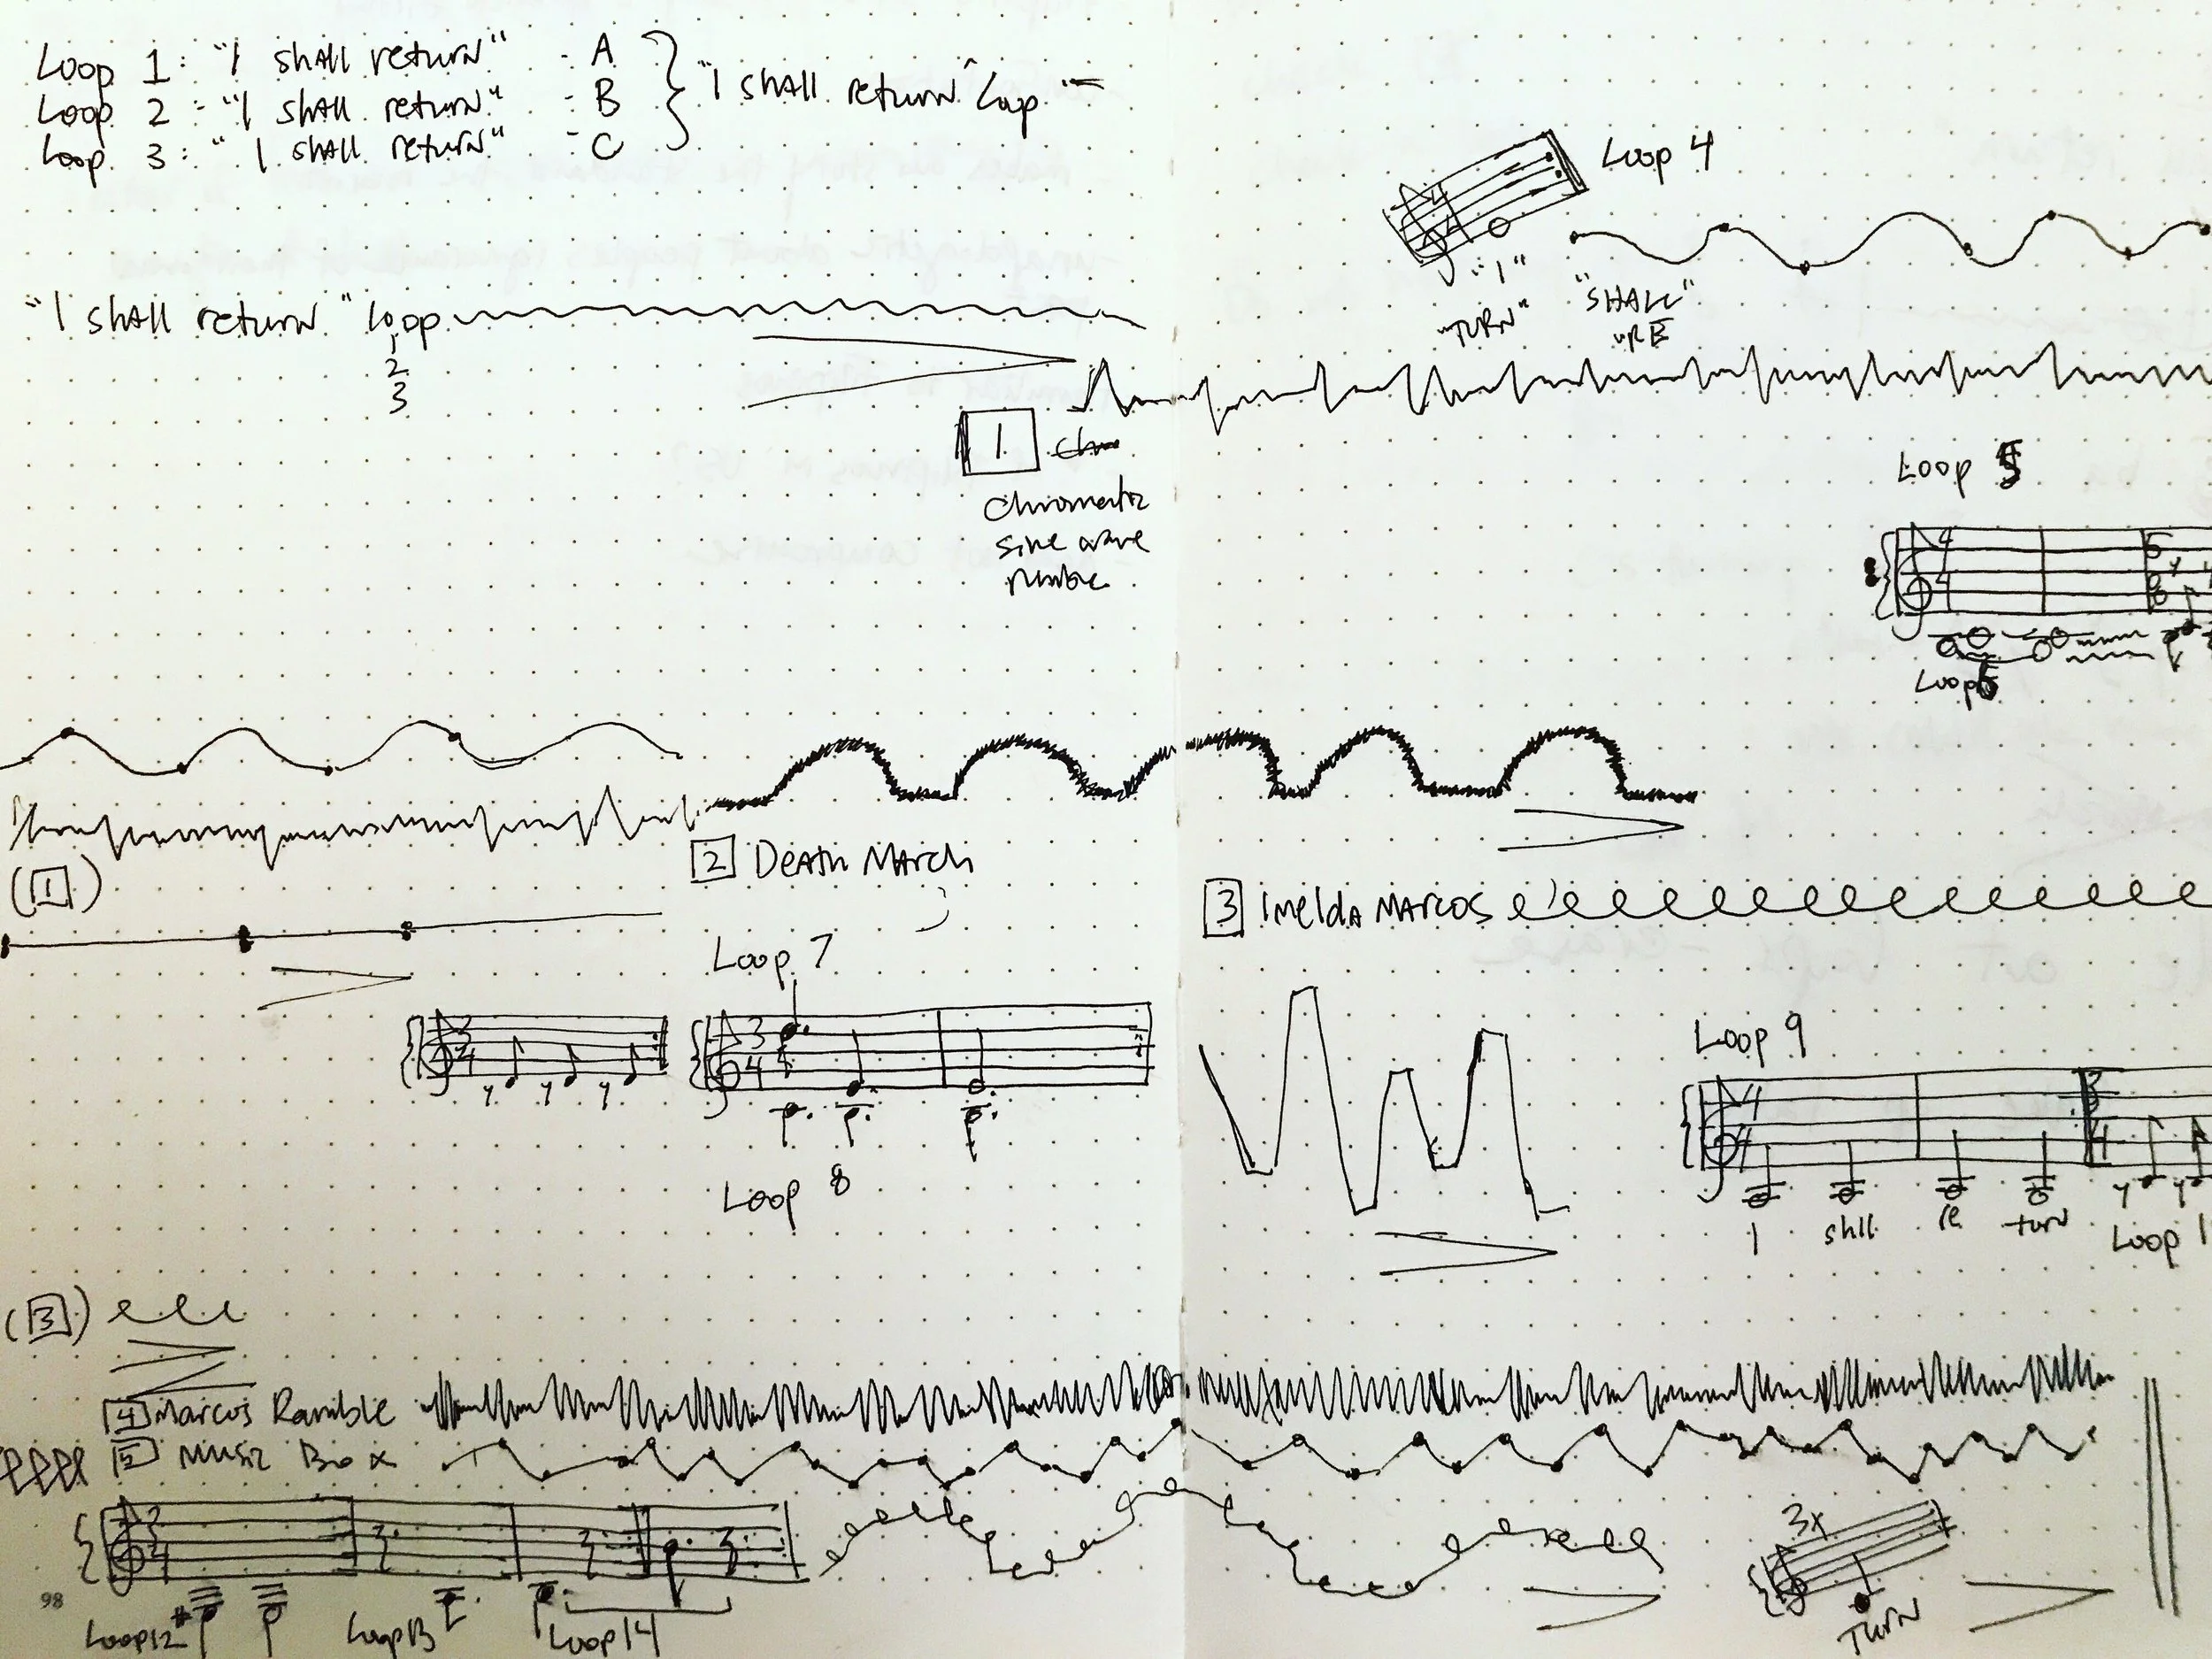 Loop 1: "I shall return" - A
Loop 2: "I shall return" - B
Loop 3: "I shall return" - C
"I shall return" Loop
Loop 4
"I"
"TURN"
"SHALL"
"RE
"I shall return" loop
1
2
3
1
Chromatic
sine wave
Loop 5
4
4
6
8
Loop 6
(1)
2 Death March
3 Imelda Marcos
Loop 7
3
4
3
4
Loop 8
Loop 9
4
4
3
4
I shll re turn
Loop 1
(3)
4 Marcos Ramble
5 Music Box
3
4
3x
TURN
98
Loop 12
Loop 13
Loop 14